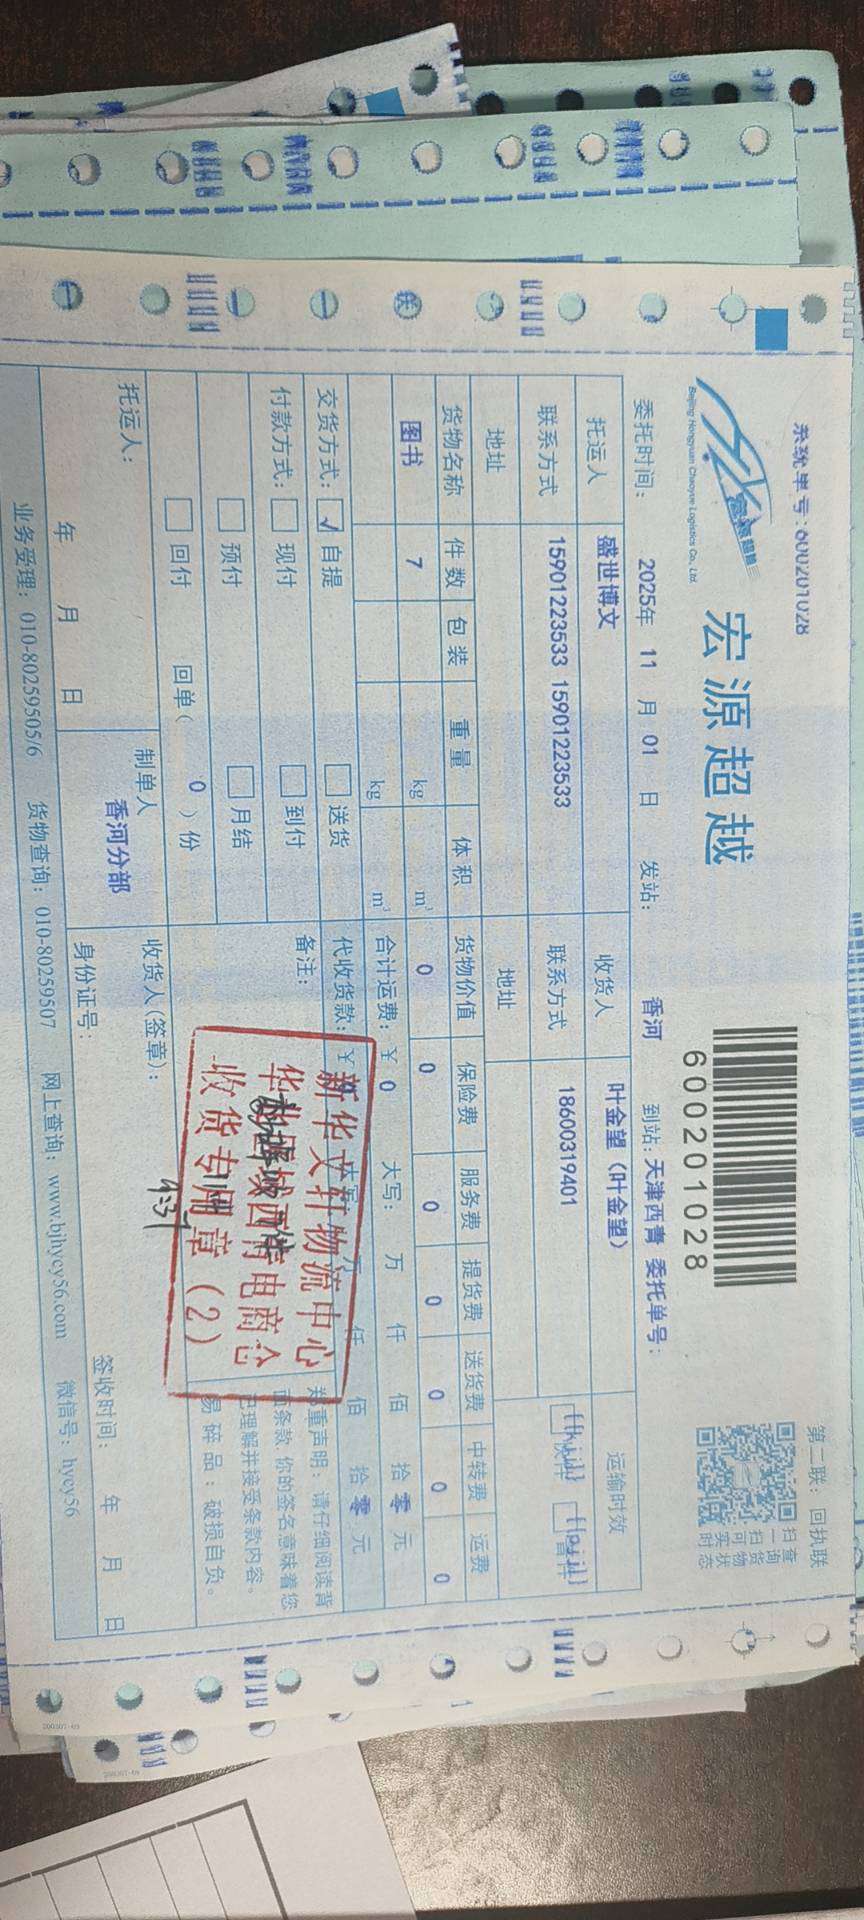 系统单号:600201028
第二联：回执联
Beijing Hongyuan Chaoyue Logistics Co., Ltd.
宏源超越
600201028
扫一扫可实时
查询货物状态
委托时间: 2025年 11 月 01 日 发站: 香河 到站:天津西青 委托单号:
托运人 盛世博文 收货人 叶金望（叶金望） 运输时效
联系方式 15901223533 15901223533 联系方式 18600319401
地址 地址
货物名称 件数 包装 重量 体积 货物价值 保险费 服务费 提货费 送货费 中转费 运费
图书 7 kg m³ 0 0 0 0 0 0 0
kg m³ 合计运费: ￥ 0 大写: 万 仟 佰 拾 零 元
交货方式: ☑ 自提 □ 送货 代收货款: ￥ 仟 佰 拾 零 元
付款方式: □ 现付 □ 到付 备注:
□ 预付 □ 月结
□ 回付 回单( 0 )份
郑重声明：请仔细阅读背
面条款，你的签名意味着您
已理解并接受条款内容。
易碎品：破损自负。
新华文轩物流中心
收货专用章（2）
托运人: 制单人 收货人(签章):
香河分部 身份证号:
年 月 日 签收时间: 年 月 日
业务受理: 010-80259505/6 货物查询: 010-80259507 网上查询: www.bjhycy56.com 微信号: hycy56